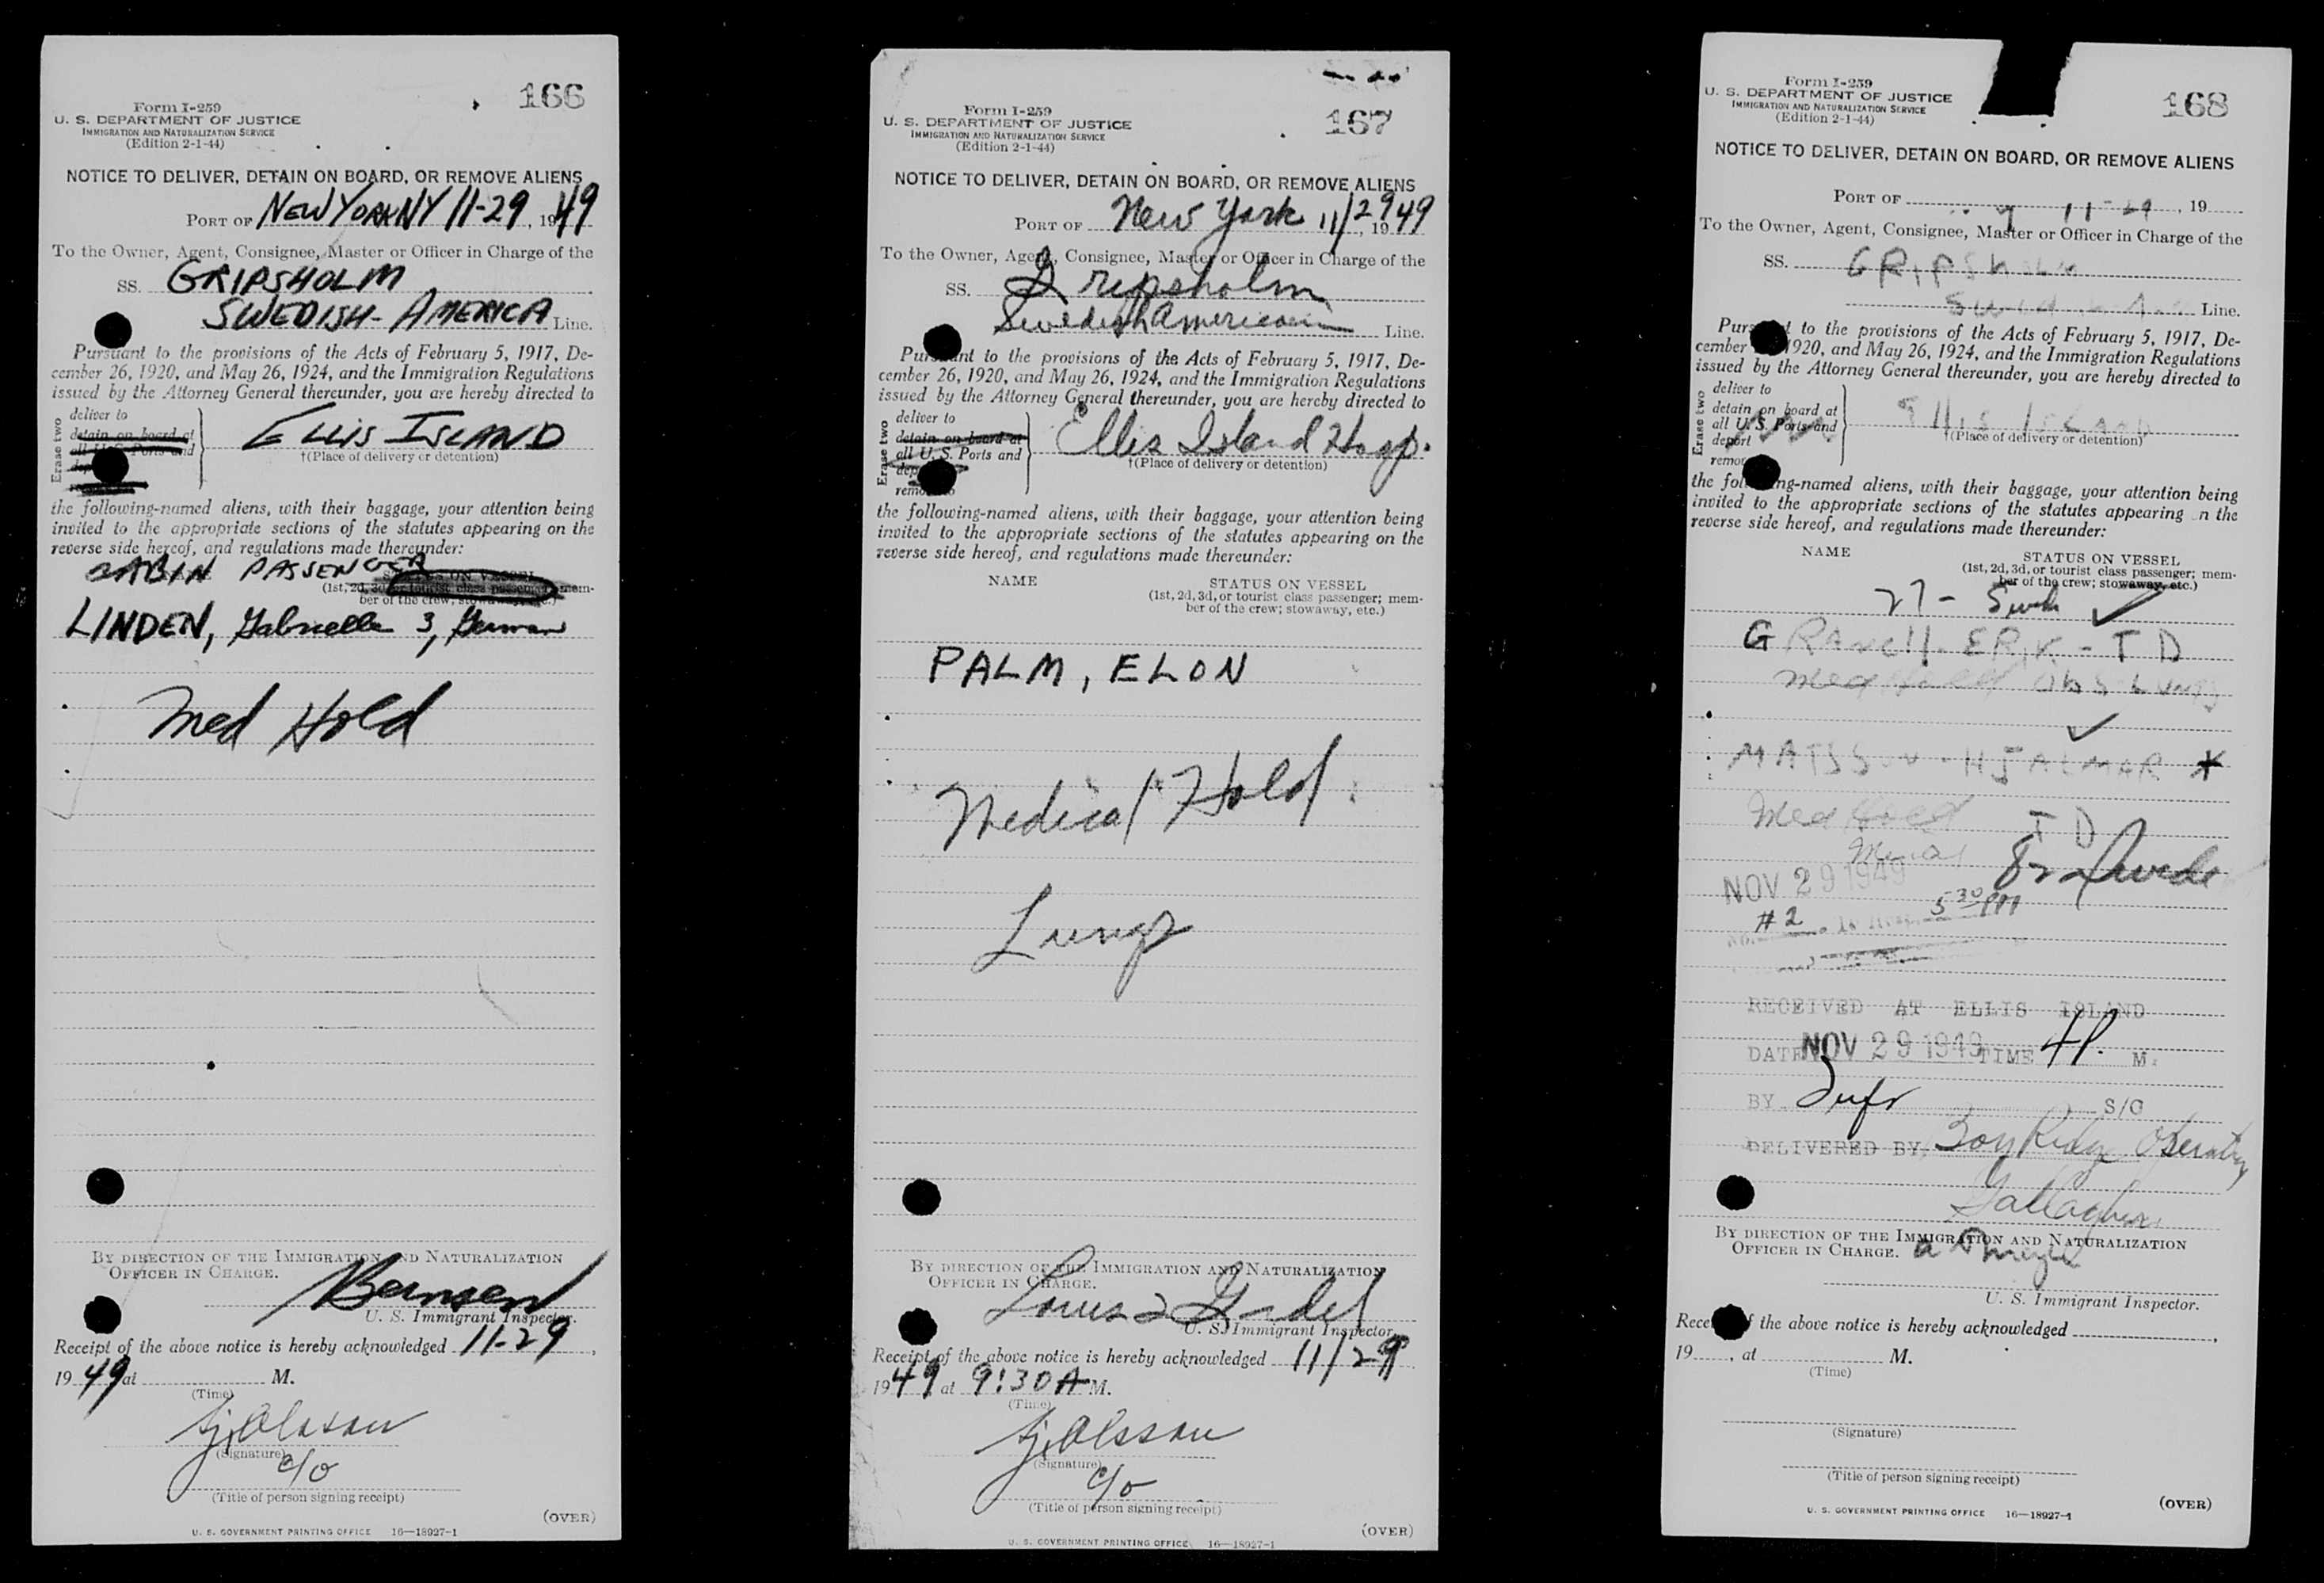 166
Form I-259
U. S. DEPARTMENT OF JUSTICE
IMMIGRATION AND NATURALIZATION SERVICE
(Edition 2-1-44)
NOTICE TO DELIVER, DETAIN ON BOARD, OR REMOVE ALIENS
PORT OF NEW YORK NY 11-29, 1949
To the Owner, Agent, Consignee, Master or Officer in Charge of the
SS. GRIPSHOLM
SWEDISH-AMERICA Line.
Pursuant to the provisions of the Acts of February 5, 1917, De-
cember 26, 1920, and May 26, 1924, and the Immigration Regulations
issued by the Attorney General thereunder, you are hereby directed to
Erase two
deliver to
detain on board at
all U. S. Ports and
ELLIS ISLAND
†(Place of delivery or detention)
the following-named aliens, with their baggage, your attention being
invited to the appropriate sections of the statutes appearing on the
reverse side hereof, and regulations made thereunder:
CABIN PASSENGER
STATUS ON VESSEL
(1st, 2d, 3d, or tourist class passenger; mem-
ber of the crew; stowaway, etc.)
LINDEN, Gabrielle 3, German
Med Hold
BY DIRECTION OF THE IMMIGRATION AND NATURALIZATION
OFFICER IN CHARGE.
U. S. Immigrant Inspector.
Receipt of the above notice is hereby acknowledged 11-29,
1949 at M.
(Time)
Olsson
(Signature)
c/o
(Title of person signing receipt)
(OVER)
U. S. GOVERNMENT PRINTING OFFICE 16—18927-1
167
Form I-259
U. S. DEPARTMENT OF JUSTICE
IMMIGRATION AND NATURALIZATION SERVICE
(Edition 2-1-44)
NOTICE TO DELIVER, DETAIN ON BOARD, OR REMOVE ALIENS
PORT OF New York 11/29, 1949
To the Owner, Agent, Consignee, Master or Officer in Charge of the
SS. Gripsholm
Swedish American Line.
Pursuant to the provisions of the Acts of February 5, 1917, De-
cember 26, 1920, and May 26, 1924, and the Immigration Regulations
issued by the Attorney General thereunder, you are hereby directed to
Erase two
deliver to
detain on board at
all U. S. Ports and
remove to
Ellis Island Hosp.
†(Place of delivery or detention)
the following-named aliens, with their baggage, your attention being
invited to the appropriate sections of the statutes appearing on the
reverse side hereof, and regulations made thereunder:
NAME STATUS ON VESSEL
(1st, 2d, 3d, or tourist class passenger; mem-
ber of the crew; stowaway, etc.)
PALM, ELON
Medical Hold
Lungs
BY DIRECTION OF THE IMMIGRATION AND NATURALIZATION
OFFICER IN CHARGE.
Louis
U. S. Immigrant Inspector.
Receipt of the above notice is hereby acknowledged 11/29,
1949 at 9:30 A M.
(Time)
Olsson
(Signature)
c/o
(Title of person signing receipt)
(OVER)
U. S. GOVERNMENT PRINTING OFFICE 16—18927-1
168
Form I-259
U. S. DEPARTMENT OF JUSTICE
IMMIGRATION AND NATURALIZATION SERVICE
(Edition 2-1-44)
NOTICE TO DELIVER, DETAIN ON BOARD, OR REMOVE ALIENS
PORT OF 11-29, 19
To the Owner, Agent, Consignee, Master or Officer in Charge of the
SS. GRIPSHOLM
Line.
Pursuant to the provisions of the Acts of February 5, 1917, De-
cember 1920, and May 26, 1924, and the Immigration Regulations
issued by the Attorney General thereunder, you are hereby directed to
Erase two
deliver to
detain on board at
all U. S. Ports and
deport
remove
Ellis Island
†(Place of delivery or detention)
the following-named aliens, with their baggage, your attention being
invited to the appropriate sections of the statutes appearing on the
reverse side hereof, and regulations made thereunder:
NAME STATUS ON VESSEL
(1st, 2d, 3d, or tourist class passenger; mem-
ber of the crew; stowaway, etc.)
27 - Swede ✓
ERIK - TD
Med Hold Obs Lungs
✓
MATSSON - HJALMAR *
Med Hold TD
Swede
NOV 29 1949
#2 5 30 PM
RECEIVED AT ELLIS ISLAND
DATE NOV 29 1949 TIME 4 P. M.
BY S/O
DELIVERED BY Bay Ridge Operating
Gallagher
BY DIRECTION OF THE IMMIGRATION AND NATURALIZATION
OFFICER IN CHARGE.
U. S. Immigrant Inspector.
Receipt of the above notice is hereby acknowledged ,
19 , at M.
(Time)
(Signature)
(Title of person signing receipt)
(OVER)
U. S. GOVERNMENT PRINTING OFFICE 16—18927-1